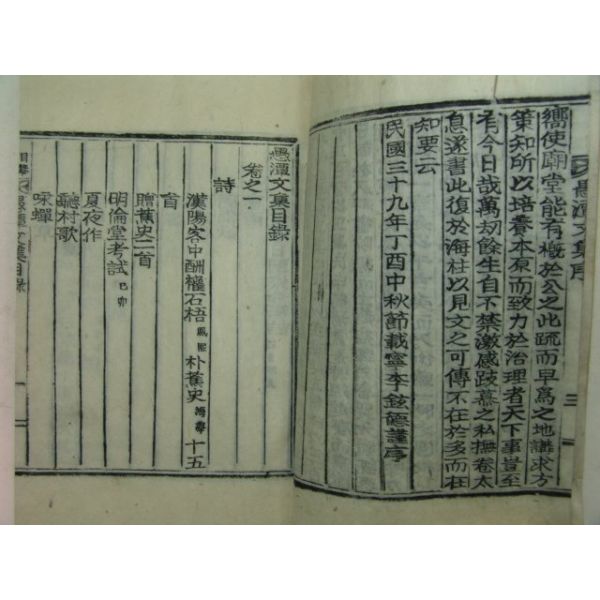 愚潭文集序
三
嚮使廟堂能有槪於公之此疏而早爲之地講求方
策知所以培養本原而致力於治理者天下事豈至
有今日哉萬刼餘生自不禁激感跂慕之私撫卷太
息遂書此復於海杜以見文之可傳不在於多而在
知要云
民國三十九年丁酉中秋節載寧李鉉德謹序
愚潭文集目錄
卷之一
詩
漢陽客中酬權石梧 朴蕉史 十五
首
贈蕉史二首
明倫堂考試 己卯
夏夜作
聽村歌
咏蟬
愚潭文集目錄
一